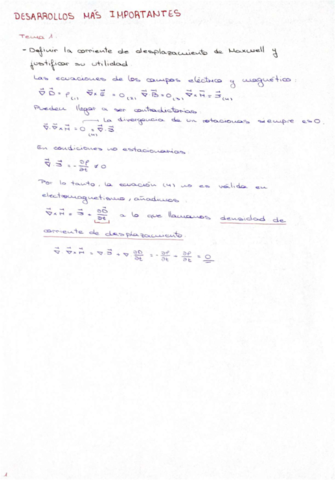 DESARROLLOS MÁS IMPORTANTES
Tema 1:
- Definir la corriente de desplazamiento de Maxwell y
justificar su utilidad
Las ecuaciones de los campos eléctrico y magnético:
∇·D = ρ (1) ∇×E = 0 (2) ∇·B = 0 (3) ∇×H = J (4)
Pueden llegar a ser contradictorias
La divergencia de un rotacional siempre es 0.
∇·∇×H = 0 = ∇·J
En condiciones no estacionarias
∇·J = -∂ρ/∂t ≠ 0
Por lo tanto, la ecuación (4) no es válida en
electromagnetismo, añadimos
∇×H = J + ∂D/∂t a lo que llamamos densidad de
corriente de desplazamiento
∇·∇×H = ∇·J + ∇·∂D/∂t = -∂ρ/∂t + ∂ρ/∂t = 0